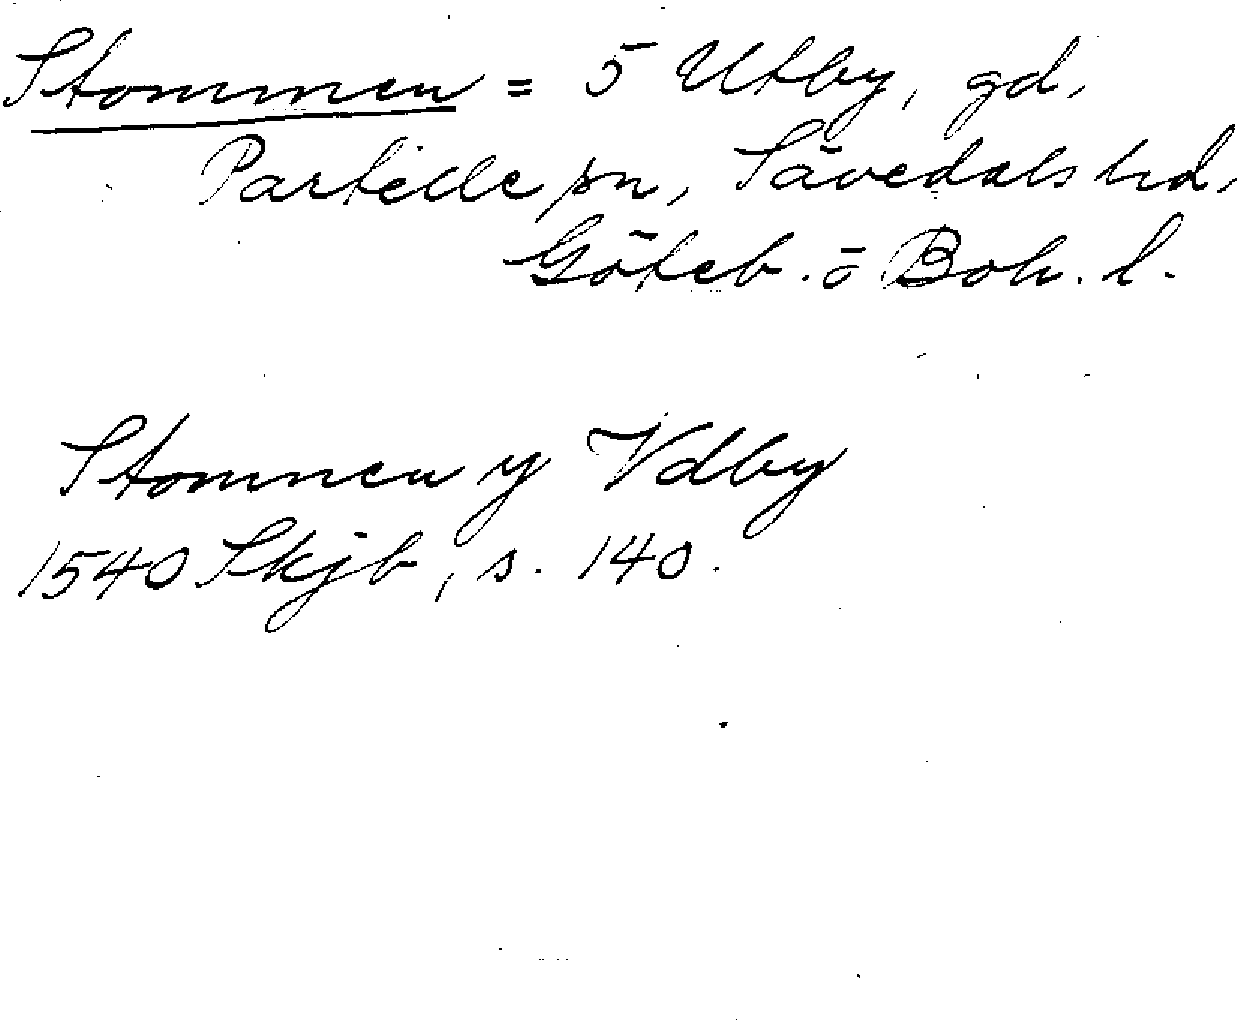 Stommen = 5 Utby, gd,
Partille sn, Sävedals hd,
Göteb. o Boh. l.
Stommen y Vdby
1540 Skjb, s. 140.